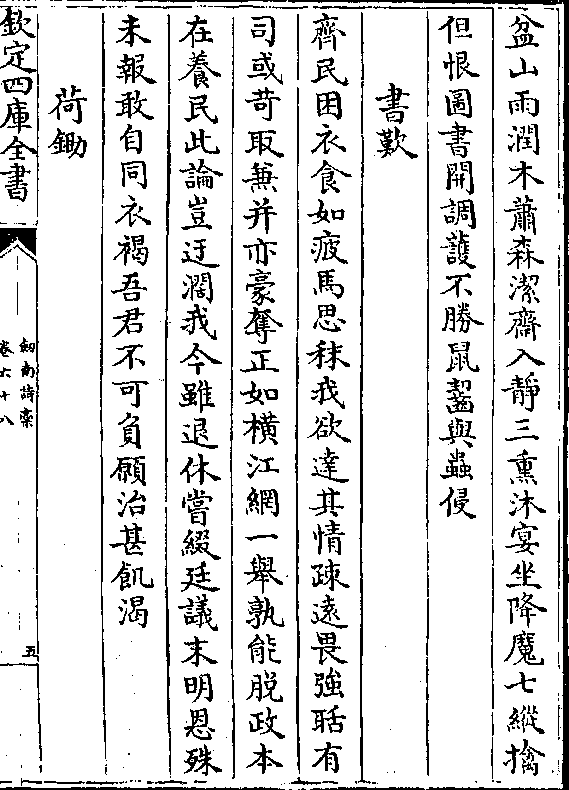 盆山雨潤木蕭森潔齋入靜三熏沐宴坐降魔七縱擒
但恨圖書開調護不勝鼠齧與蟲侵
書歎
齊民困衣食如疲馬思秣我欲達其情疎遠畏強聒有
司或苛取兼并亦豪奪正如橫江網一舉孰能脫政本
在養民此論豈迂濶我今雖退休嘗綴廷議末明恩殊
未報敢自同衣褐吾君不可負願治甚飢渴
荷鋤
欽定四庫全書
劒南詩稾
卷六十八
五